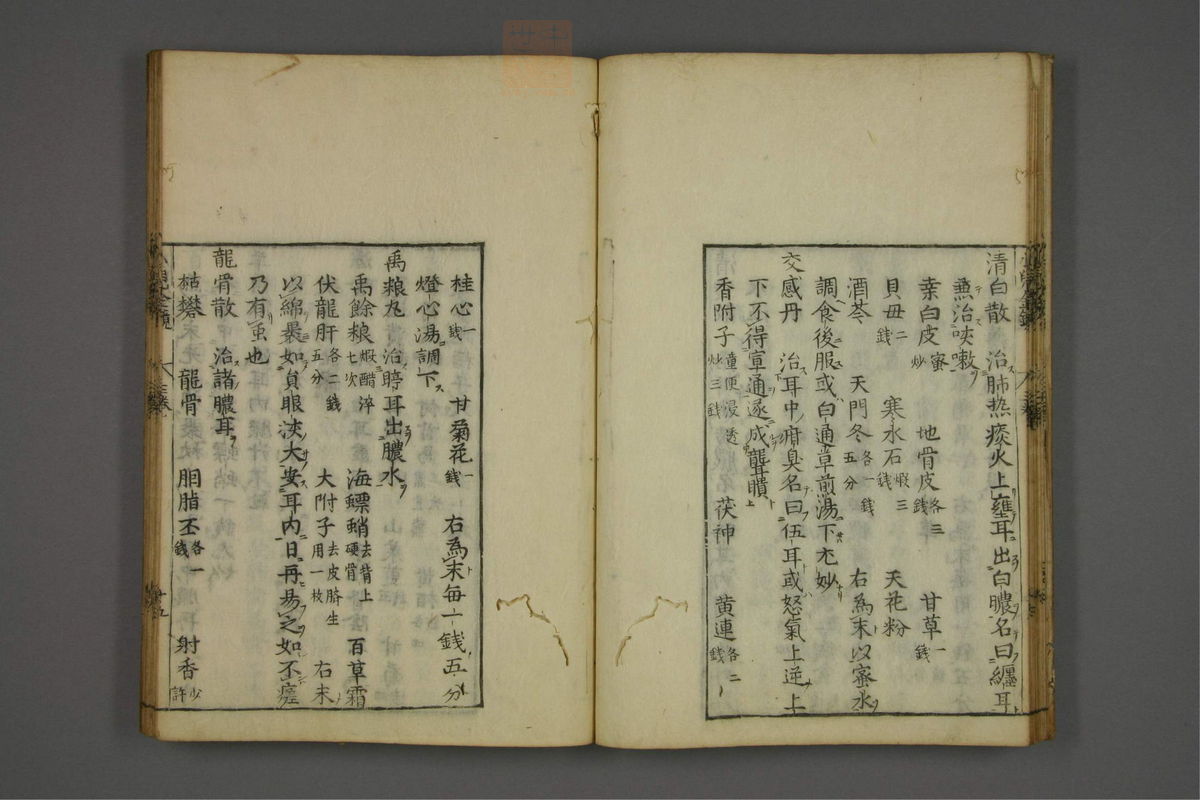 清白散 治肺热痰火上壅耳出白膿名曰纏耳
兼治咳嗽
桒白皮蜜炒 地骨皮各三錢 甘草一錢
貝毋二錢 寒水石煆三錢 天花粉
酒芩 天門冬各一錢五分 右為末以蜜水
調食後服或白通草煎湯下尤妙
交感丹 治耳中疳臭名曰伍耳或怒氣上逆上
下不得宣通遂成聾聵
香附子童便浸透炒三錢 茯神 黄連各二錢
桂心一錢 甘菊花一錢 右為末每一錢五分
燈心湯調下
禹粮丸 治聤耳出膿水
禹餘粮煆醋淬七次 海螵蛸去背上硬骨 百草霜
伏龍肝各二錢五分 大附子去皮臍生用一枚 右末
以綿裹如負眼浹大安耳内日再易之如不瘥
乃有虫也
龍骨散 治諸膿耳
枯礬 龍骨 胭脂丕各一錢 射香少許